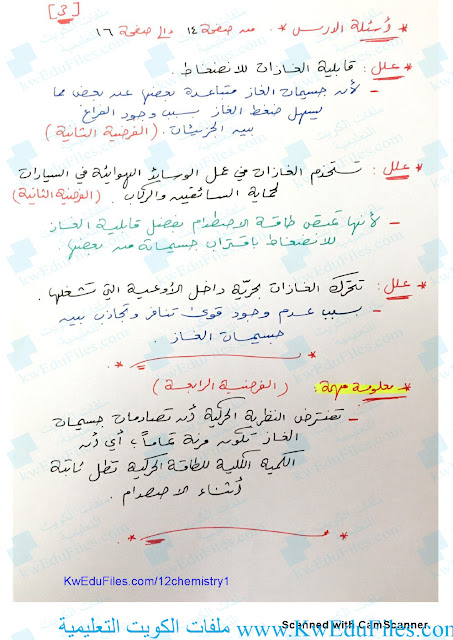 [3]
* أسئلة الدرس * من صفحة ١٤ الى صفحة ١٦
* علل : قابلية الغازات للانضغاط .
- لأن جسيمات الغاز متباعدة بعضها عن بعض مما
يسهل ضغط الغاز بسبب وجود الفراغ
بين الجزيئات . ( الفرضية الثانية )
* علل : تستخدم الغازات في عمل الوسائد الهوائية في السيارات
لحماية السائقين والركاب . ( الفرضية الثانية )
- لأنها تمتص طاقة الاصطدام بفضل قابلية الغاز
للانضغاط باقتراب جسيماته من بعضها .
* علل : تتحرك الغازات بحرية داخل الأوعية التي تشغلها .
- بسبب عدم وجود قوى تنافر وتجاذب بين
جسيمات الغاز .
* معلومة مهمة : ( الفرضية الرابعة )
- تفترض النظرية الحركية أن تصادمات جسيمات
الغاز تكون مرنة تماماً ؛ أي أن
الكمية الكلية للطاقة الحركية تظل ثابتة
أثناء الاصطدام .
KwEduFiles.com/12chemistry1
Scanned with CamScanner
www.KwEduFiles.com ملفات الكويت التعليمية